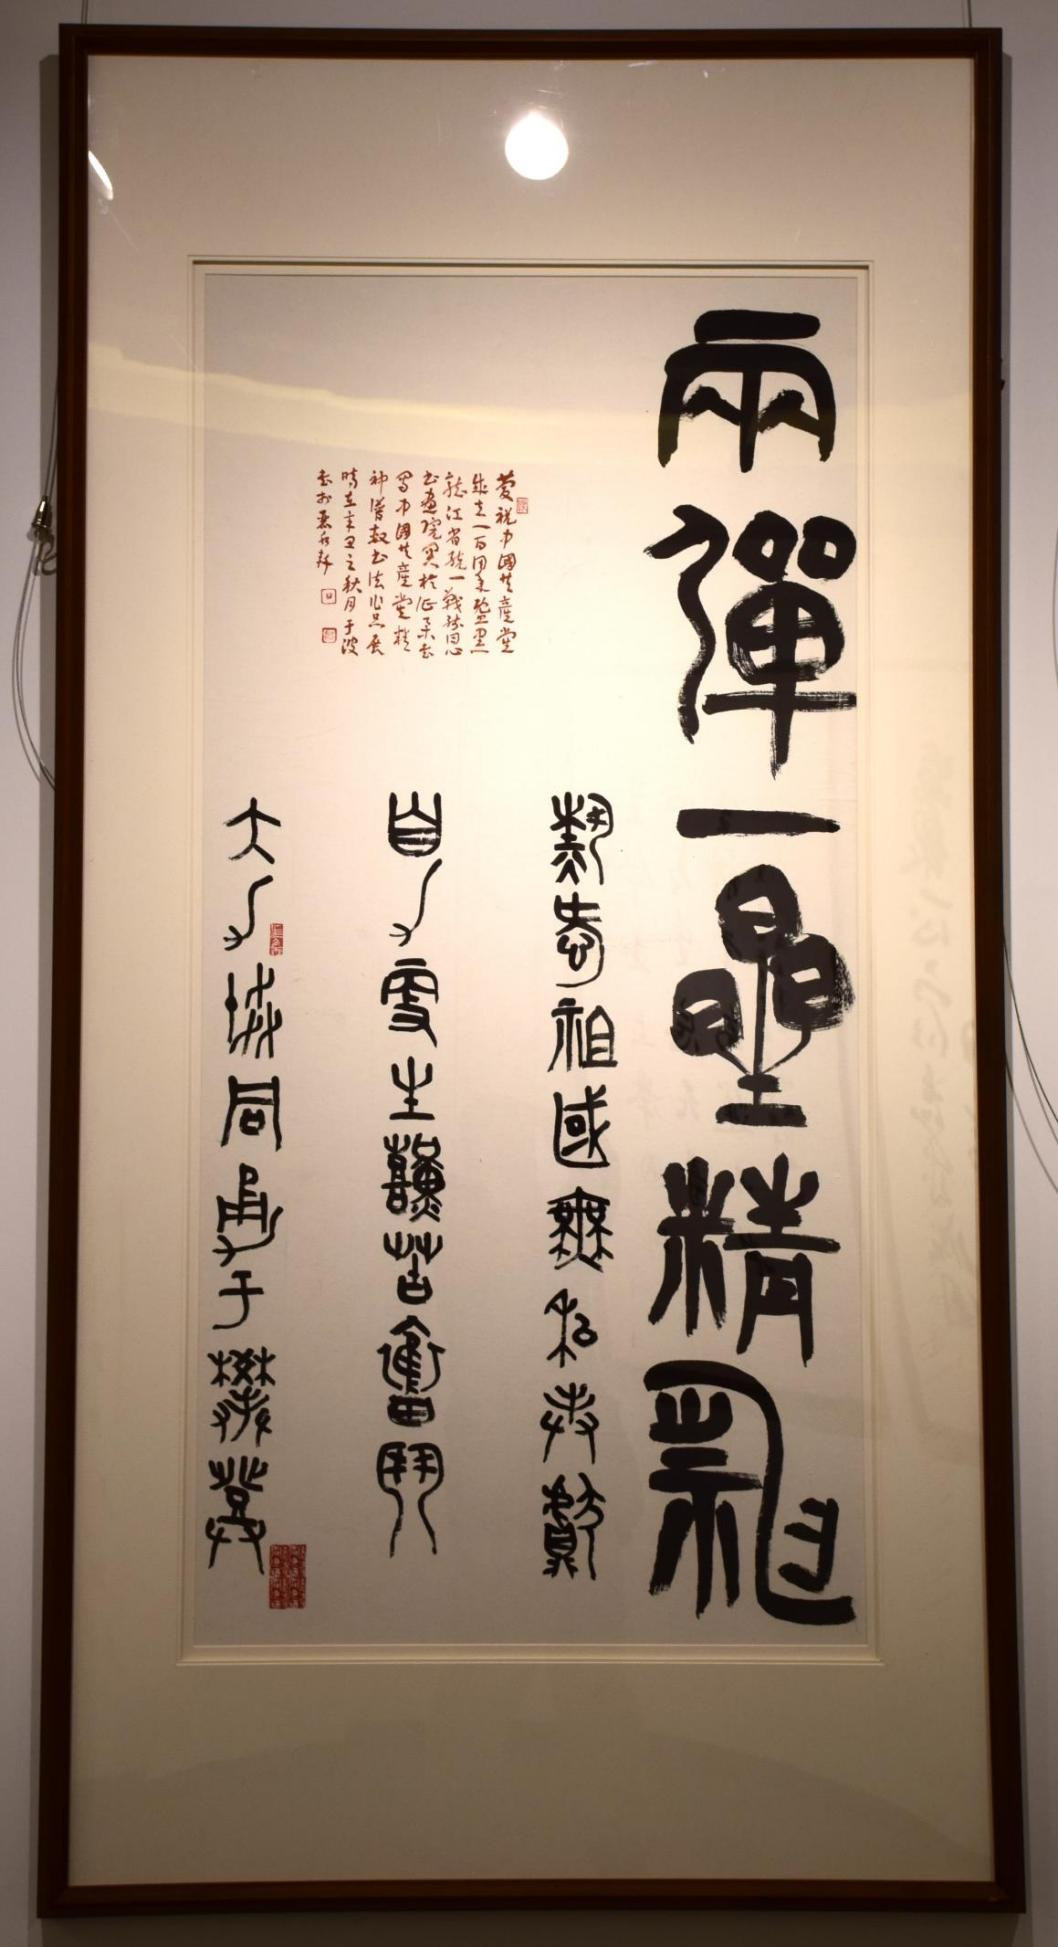 兩彈一星精神
熱愛祖國無私奉獻
自力更生艱苦奮鬥
大力協同勇于攀登
慶祝中國共產黨
成立一百周年暨黑
龍江省統一戰線同心
書畫院關於征集書
寫中國共產黨精
神譜系書法作品展
時在辛丑之秋月于波
書於